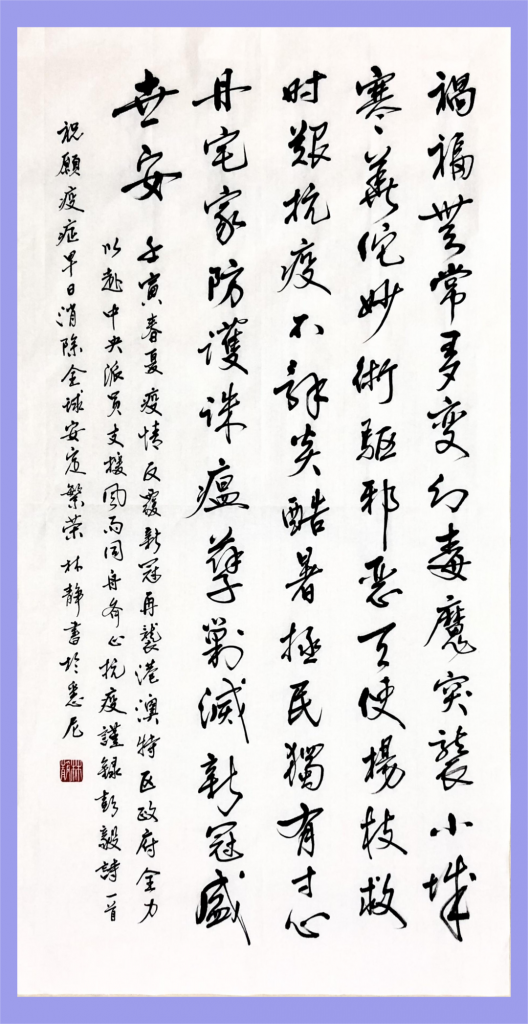 禍福無常多变幻毒魔突襲小城
寒〻華佗妙術驅邪惡天使楊枝救
时艰抗疫不辞炎酷暑拯民獨有寸心
丹宅家防護诛瘟孽剿滅新冠盛
世安
壬寅春夏疫情反覆新冠再襲港澳特区政府全力
以赴中央派员支援风雨同舟齐心抗疫謹録彭毅詩一首
祝願疫症早日消除全球安定繁荣林静書於悉尼